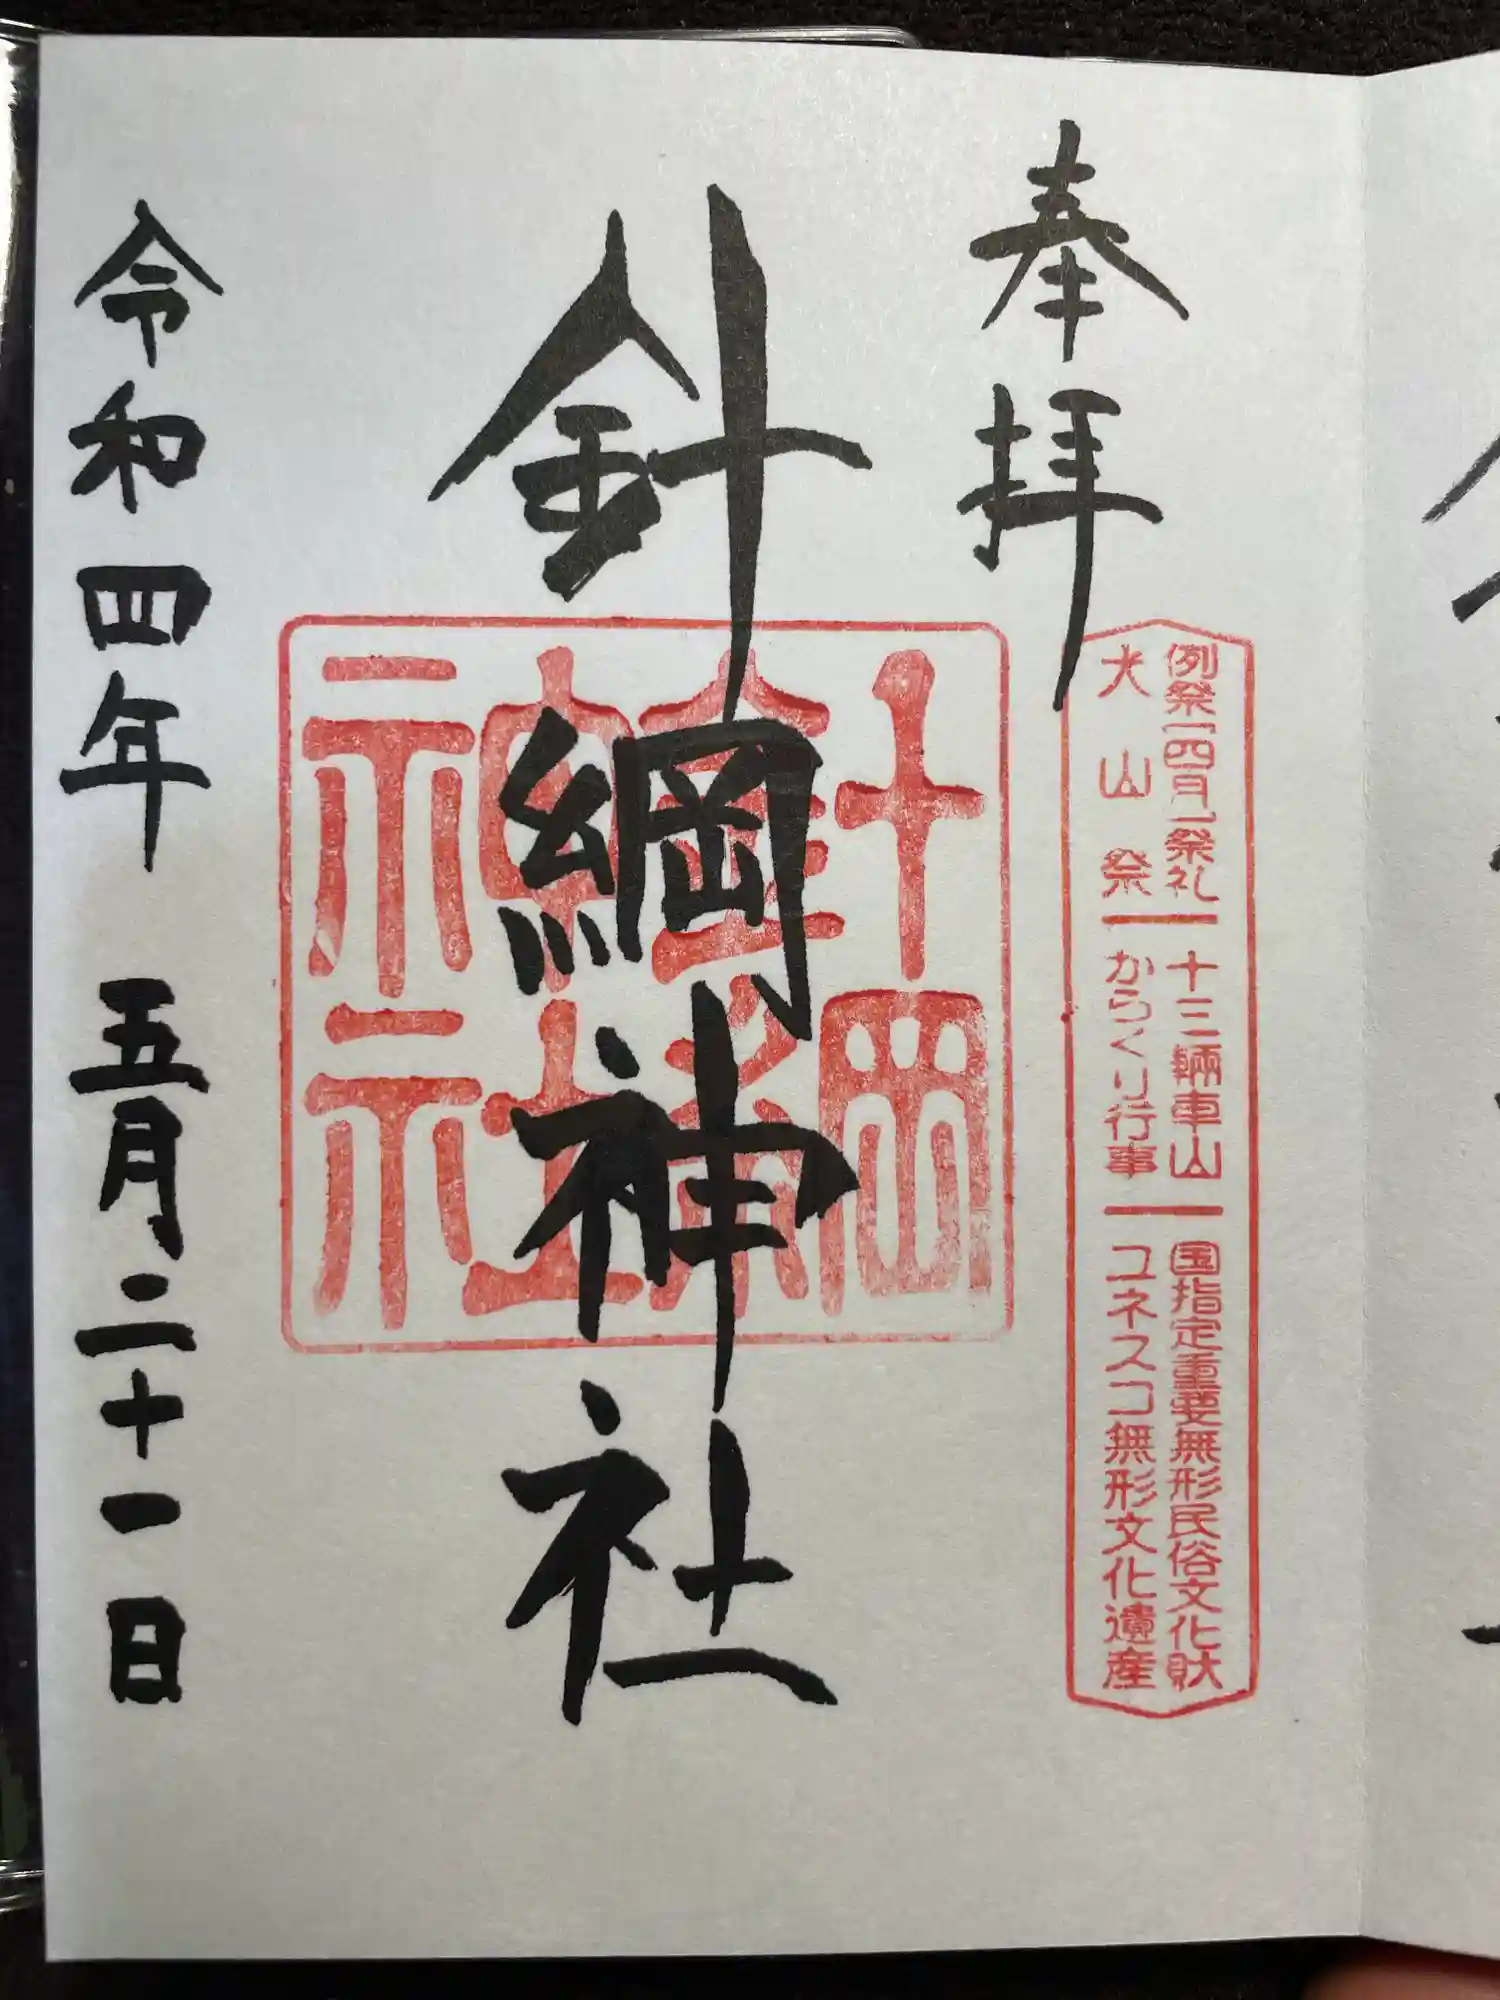 奉拝
例祭「四月」祭礼 十三輛車山 国指定重要無形民俗文化財
犬山祭 からくり行事 ユネスコ無形文化遺産
針綱神社
針綱
神社
令和四年 五月二十一日